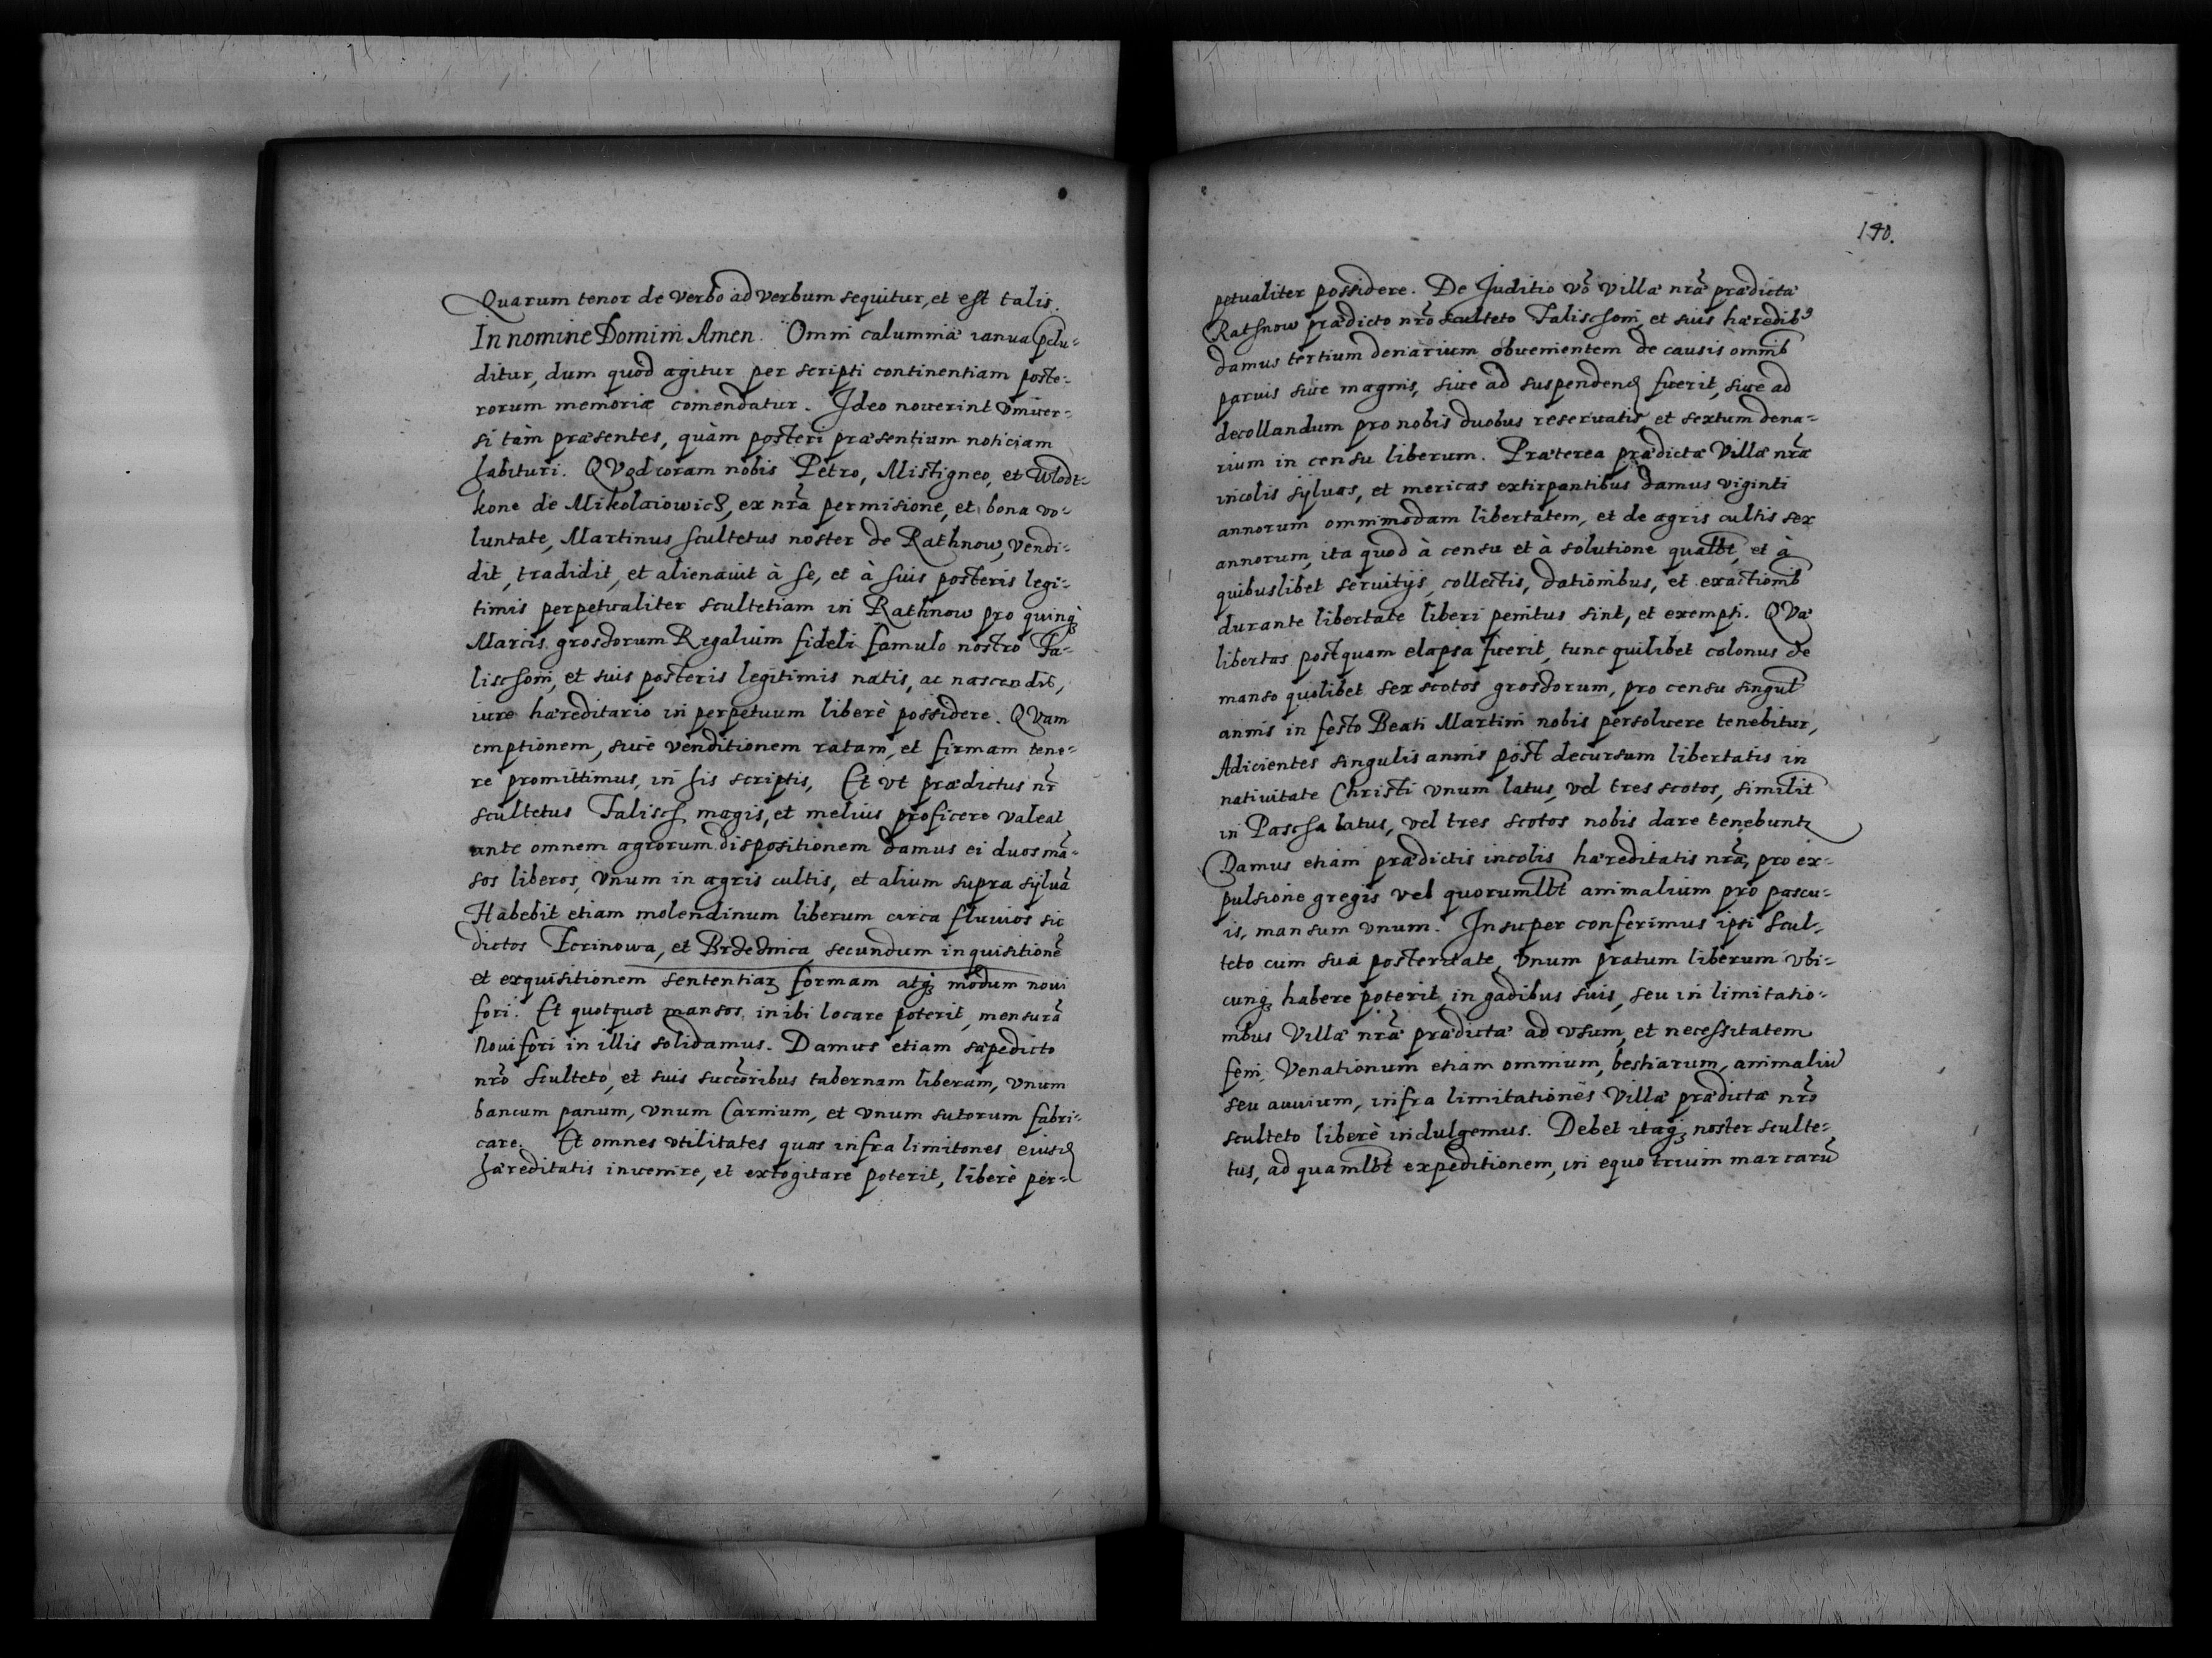 Quarum tenor de verbo ad verbum sequitur, et est talis.
In nomine Domini Amen. Omni calumniæ ianua pclu-
ditur, dum quod agitur per scripti continentiam poste-
rorum memoriæ comendatur. Ideo noverint vniver-
si tàm præsentes, quàm posteri præsentium noticiam
habituri. QVod coram nobis Petro, Mistigneo, et Wlodt-
kone de Mikolaiowicz, ex nrã permisione, et bona vo-
luntate, Martinus scultetus noster de Rathnow, vendi-
dit, tradidit, et alienavit à se, et à suis posteris legi-
timis perpetualiter scultetiam in Rathnow pro quinq3
Marcis grossorum Regalium fideli famulo nostro Fa-
lischoni, et suis posteris legitimis natis, ac nascendis,
iure hæreditario in perpetuum liberè possidere. QVam
emptionem, sive venditionem ratam, et firmam tene-
re promittimus, in his scriptis, Et vt prædictus nr̃
scultetus Falisch magis, et melius proficere valeat
ante omnem agrorum dispositionem damus ei duos mã-
sos liberos, vnum in agris cultis, et alium supra sylvã
Habebit etiam molendinum liberum circa fluvios sic
dictos Tcrinowa, et Brdednica, secundum inquisitionẽ
et exquisitionem sententiar̃ formam atq3 modum novi
fori. Et quotquot mansos inibi locare poterit, mensurã
Novifori in illis solidamus. Damus etiam sæpedicto
nrõ sculteto, et suis succõribus tabernam liberam, vnum
bancum panum, vnum Carnium, et vnum sutorum fabri-
care. Et omnes vtilitates quas infra limitones eiusd
hæreditatis invenire, et extogitare poterit, liberè per-
140.
petualiter possidere. De Juditio võ villæ nrã prædictæ
Rathnow prædicto nrõ sculteto Falischoni, et suis hæredib9
damus tertium denarium obvenientem de causis omnib
parvis sive magnis, sive ad suspendend fuerit, sive ad
decollandum pro nobis duobus reservatis, et sextum dena-
rium in censu liberum. Præterea prædictæ Villæ nrã
incolis sylvas, et mericas extirpantibus damus viginti
annorum omnimodam libertatem, et de agris cultis sex
annorum, ita quod à censu et à solutione qualbt, et à
quibuslibet servitijs, collectis, dationibus, et exactionib
durante libertate liberi penitus sint, et exempti. QVæ
libertas postquam elapsa fuerit, tunc quilibet colonus de
manso quolibet sex scotos grossorum, pro censu singul
annis in festo Beati Martini nobis persolvere tenebitur,
Adicientes singulis annis post decursum libertatis in
nativitate Christi vnum latus, vel tres scotos, similit
in Pascha latus, vel tres scotos nobis dare tenebuntr
Damus etiam prædictis incolis hæreditatis nrã, pro ex-
pulsione gregis vel quorumlbt animalium pro pascu-
is, mansum vnum. Insuper conferimus ipsi scul-
teto cum suà posteritate, vnum pratum liberum vbi-
cunq3 habere poterit, in gadibus suis, seu in limitatio-
nibus Villæ nrã prædictæ ad vsum, et necessitatem
feni, Venationum etiam omnium, bestiarum, animaliũ
seu avium, infra limitationes Villæ prædictæ nrõ
sculteto liberè indulgemus. Debet itaq3 noster sculte-
tus, ad quamlbt expeditionem, in equo trium marcarũ